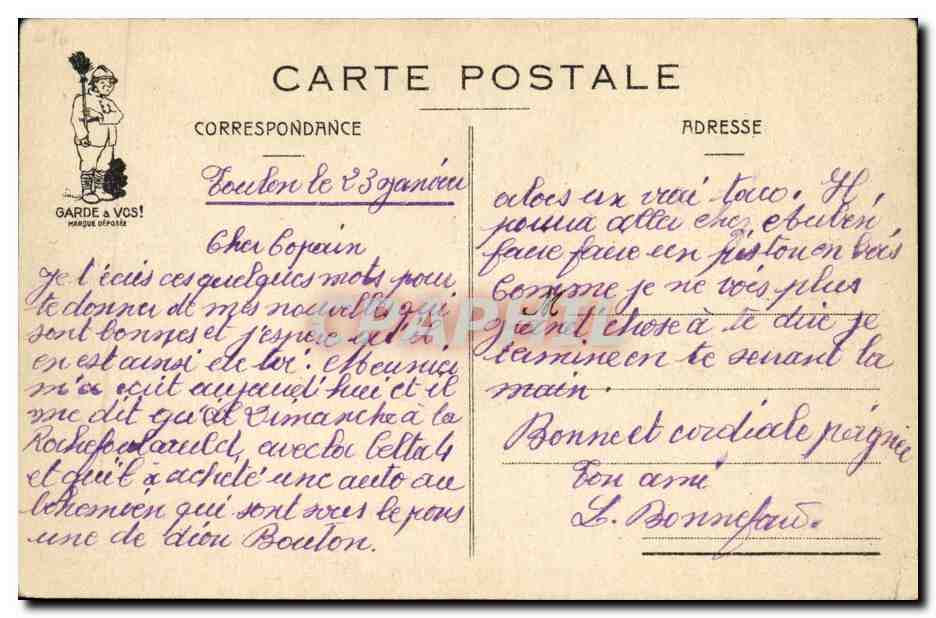 CARTE POSTALE
CORRESPONDANCE
ADRESSE
GARDE à VOS!
MARQUE DÉPOSÉE
Toulon le 23 janvier
Cher Copain
Je t'écris ces quelques mots pour
te donner de mes nouvelle qui
sont bonnes et j'espère qu'il
en est ainsi de toi. Meunier
m'a écrit aujourd'hui et il
me dit qu' Dimanche à la
Rochefoucauld, avec la
et qu'il à acheté une auto au
bohémien qui sont sous le pons
une de dion Bouton.
alors un vrai taco. Il
pourra aller chez
faire faire un piston en bois
Comme je ne vois plus
grand chose à te dire je
termine en te serrant la
main.
Bonne et cordiale poignée
Ton ami
L. Bonnefau
CPAPHIL